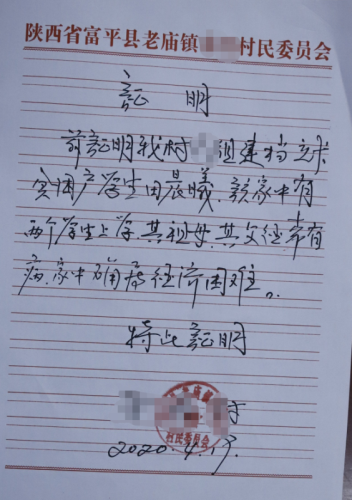 陕西省富平县老庙镇 村民委员会
証 明
兹証明我村 组建档立卡
贫困户学生田晨曦，该家中有
两个学生上学，其祖母、其父经常有
病，家中 经济困难。
特此証明
村
村民委员会
2020.4.19.